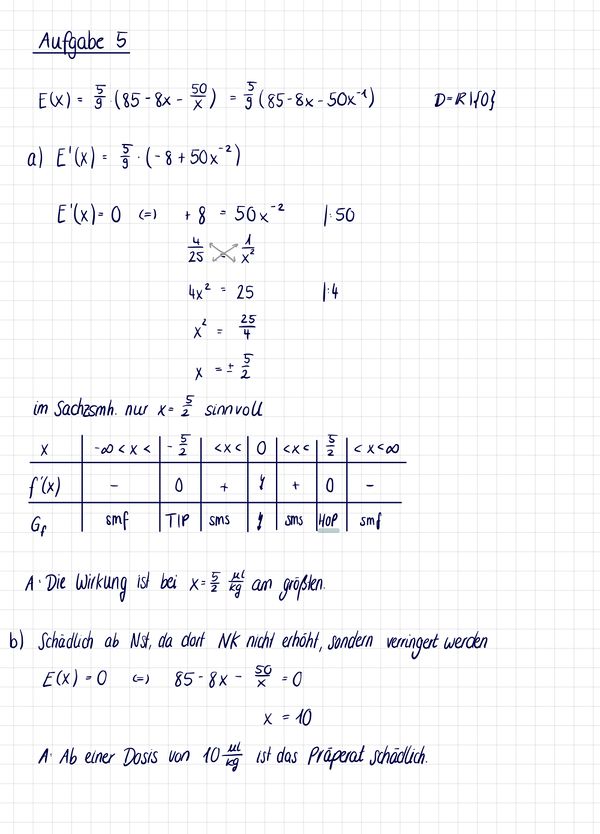 Aufgabe 5
E(x) = 5/9 · (85 - 8x - 50/x) = 5/9 (85 - 8x - 50x⁻¹) D = ℝ\{0}
a) E'(x) = 5/9 · (-8 + 50x⁻²)
E'(x) = 0 (=) + 8 = 50x⁻² |:50
4/25 = 1/x²
4x² = 25 |:4
x² = 25/4
x = ± 5/2
im Sachzsmh. nur x = 5/2 sinnvoll
x | -∞ < x < | -5/2 | < x < | 0 | < x < | 5/2 | < x < ∞
f'(x) | - | 0 | + | | + | 0 | -
G_f | smf | TIP | sms | | sms | HOP | smf
A: Die Wirkung ist bei x = 5/2 µl/kg am größten.
b) Schädlich ab Nst, da dort NK nicht erhöht, sondern verringert werden
E(x) = 0 (=) 85 - 8x - 50/x = 0
x = 10
A: Ab einer Dosis von 10 µl/kg ist das Präperat schädlich.